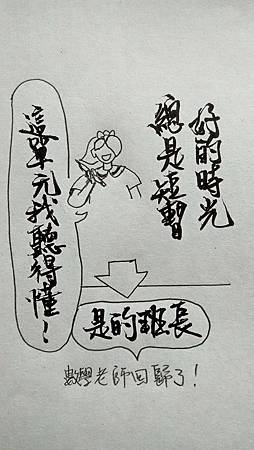 好的時光
總是短暫
這單元我聽得懂！
是的班長
數學老師回歸了！